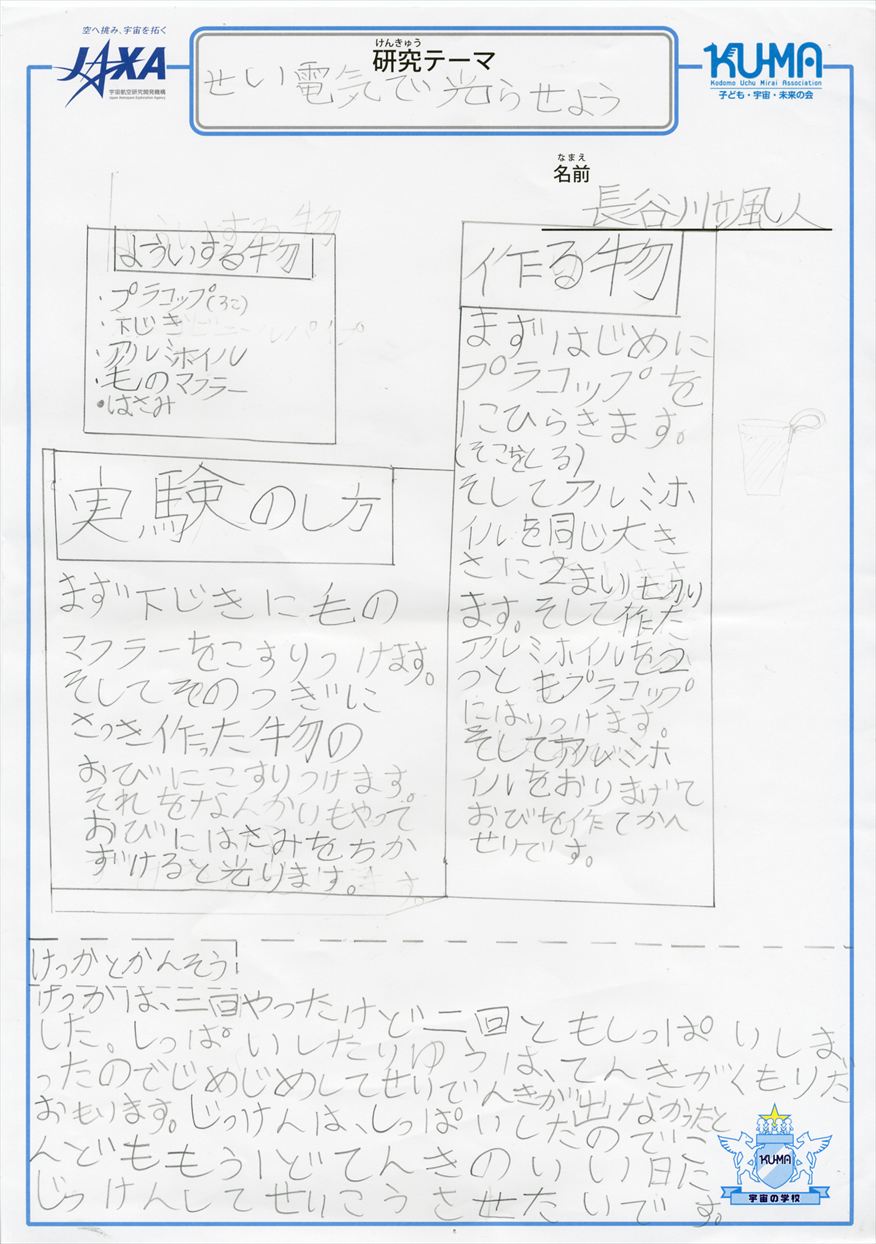 空へ挑み、宇宙を拓く
JAXA
宇宙航空研究開発機構
Japan Aerospace Exploration Agency
けんきゅう
研究テーマ
せい電気で光らせよう
KU-MA
Kodomo Uchu Mirai Association
子ども・宇宙・未来の会
なまえ
名前
長谷川颯人
よういする物
・プラコップ(3こ)
・下じき
・アルミホイル
・毛のマフラー
・はさみ
作る物
まずはじめに
プラコップを
にひらきます。
(そこをとる)
そしてアルミホ
イルを同じ大き
さに2まい切り
ます。そして作た
アルミホイルを2
つともプラコップ
にはりつけます。
そしてアルミホ
イルをおりまげて
おびを作てかん
せいです。
実験のし方
まず下じきに毛の
マフラーをこすりつけます。
そしてそのつぎに
さっき作った物の
おびにこすりつけます。
それをなんかいもやって
おびにはさみをちか
ずけると光ります。
けっかとかんそう
けっかは、二回やったけど二回ともしっぱいしま
した。しっぱいしたりゆうは、てんきがくもりだ
ったのでじめじめしてせいでんきが出なかったと
おもります。じっけんは、しっぱいしたのでこ
んどももういどてんきのいい日に
じっけんしてせいこうさせたいです。
KU-MA
宇宙の学校